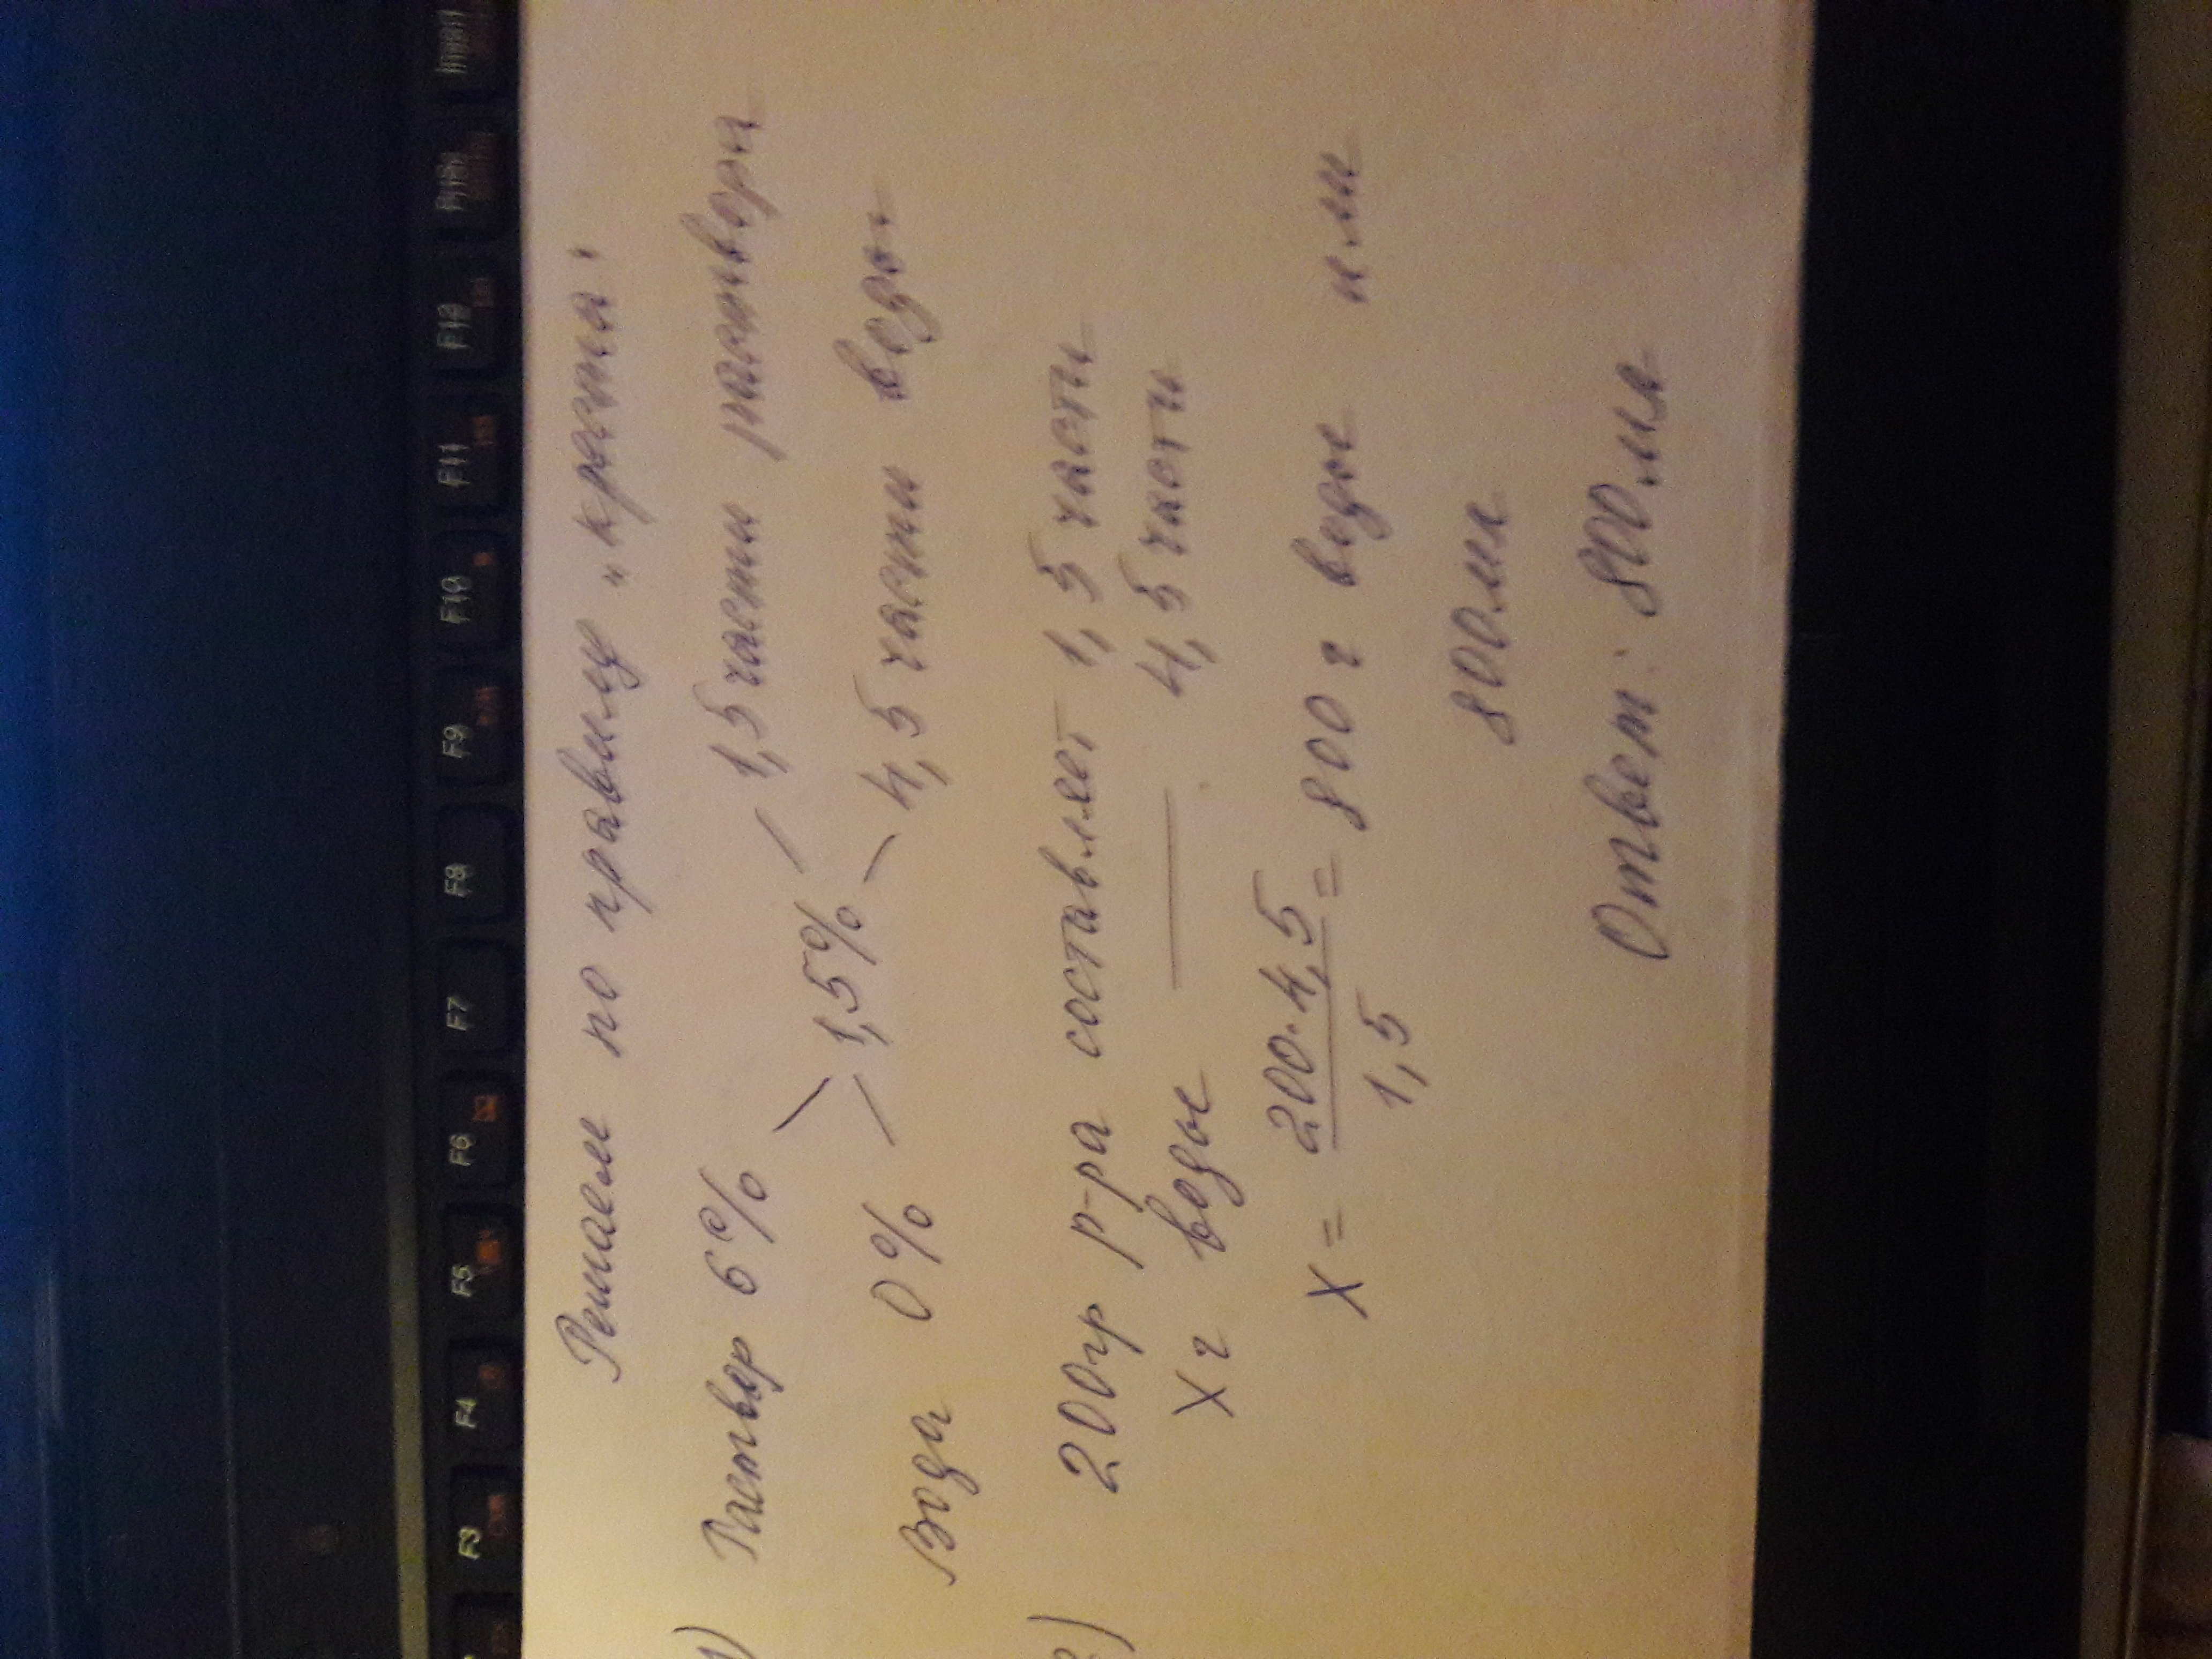 Решаем по правилу "креста"
1) Раствор 6% 1,5 части раствора
1,5%
Вода 0% 4,5 части воды
2) 200гр р-ра составляет 1,5 части
X г воды — 4,5 части
X = 200·4,5 / 1,5 = 800 г воды или
800мл
Ответ: 800мл
F3
F4
F5
F6
F7
F8
F9
F10
F11
F12